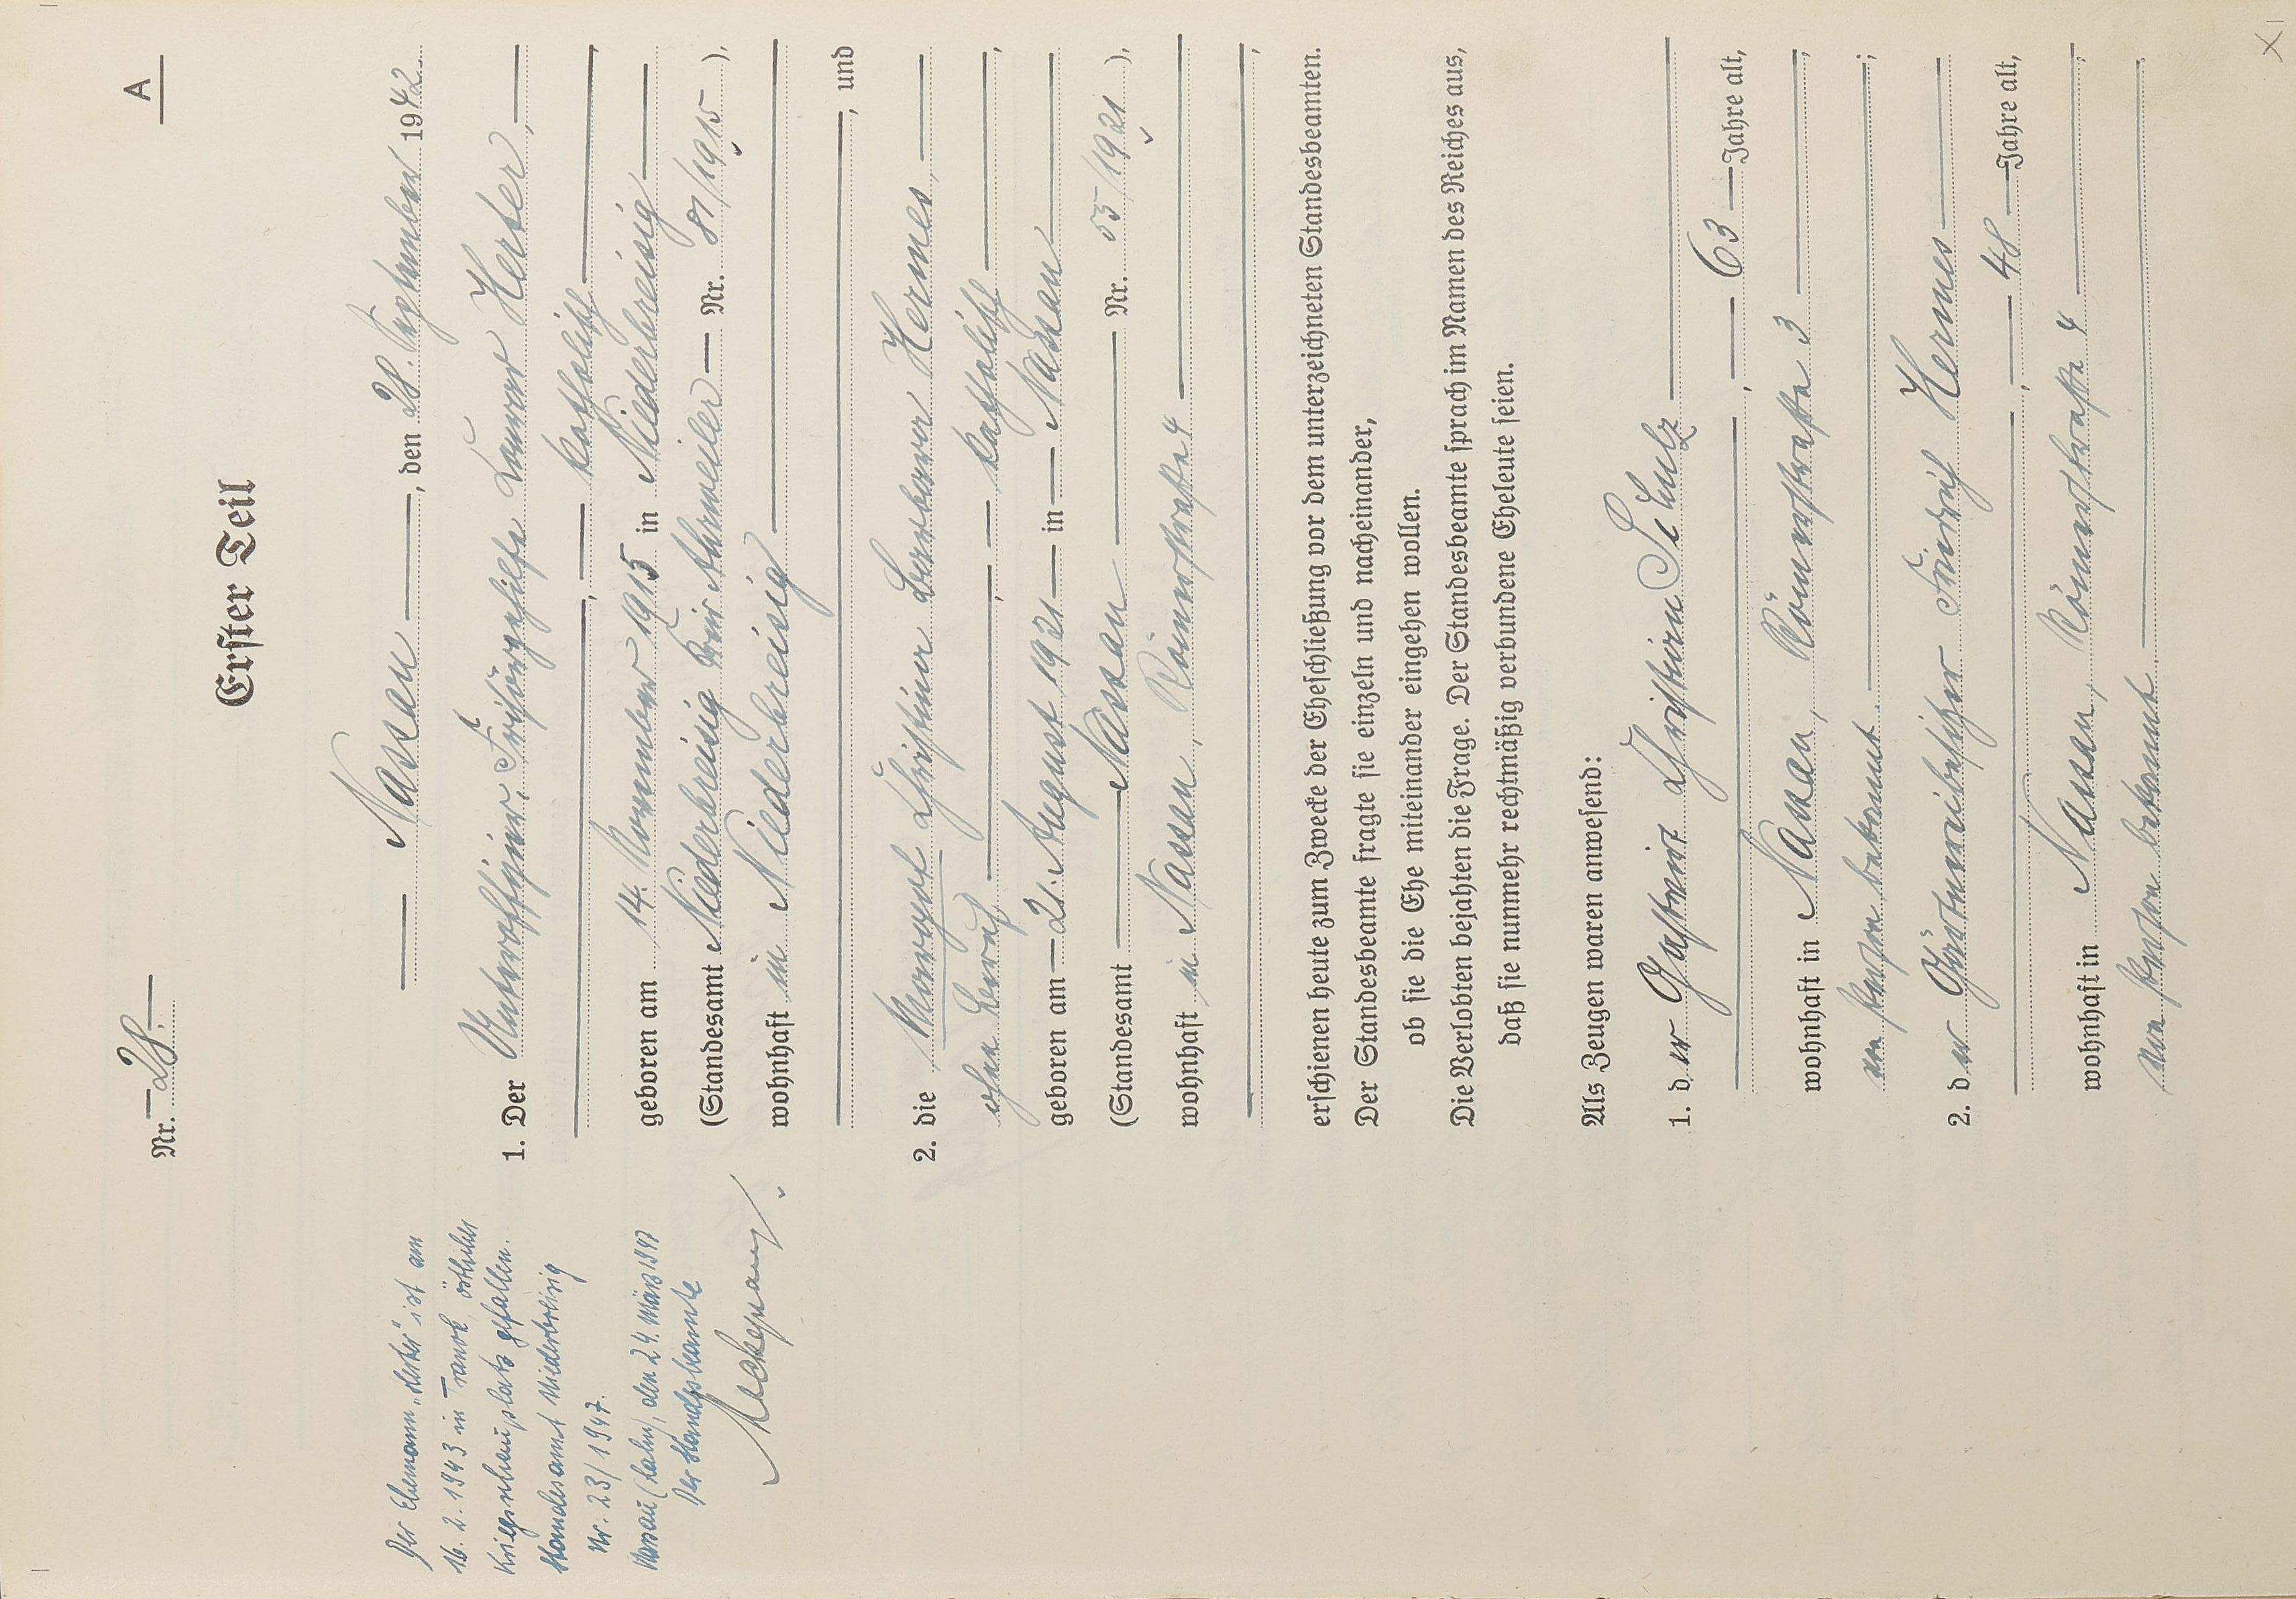 Nr. 28.
A
Erster Teil
Nassau, den 28. September 1942.
1. Der Unteroffizier, Friseurgehilfe Herter,
katholisch
geboren am 14. November 1915 in Niederbreisig
(Standesamt Niederbreisig Kreis Ahrweiler Nr. 81/1915),
wohnhaft in Niederbreisig
, und
2. die Margaret Christine Barbara Hermes,
ohne Beruf, katholisch,
geboren am 21. August 1921 in Nassau
(Standesamt Nassau Nr. 55/1921),
wohnhaft in Nassau, Römerstraße 4
,
erschienen heute zum Zwecke der Eheschließung vor dem unterzeichneten Standesbeamten.
Der Standesbeamte fragte sie einzeln und nacheinander,
ob sie die Ehe miteinander eingehen wollen.
Die Verlobten bejahten die Frage. Der Standesbeamte sprach im Namen des Reiches aus,
daß sie nunmehr rechtmäßig verbundene Eheleute seien.
Als Zeugen waren anwesend:
1. der Gastwirt Christian Schulz
, 63 Jahre alt,
wohnhaft in Nassau, Römerstraße 3,
von Person bekannt.;
2. der Friedrich Hermes
, 48 Jahre alt,
wohnhaft in Nassau, Römerstraße 4,
von Person bekannt.
Der Ehemann „Herter" ist am
16. 2. 1943 in östlicher
Kriegsschauplatz gefallen.
Standesamt Niederbreisig
Nr. 23/1947.
Nassau (Lahn), den 24. März 1947
Der Standesbeamte